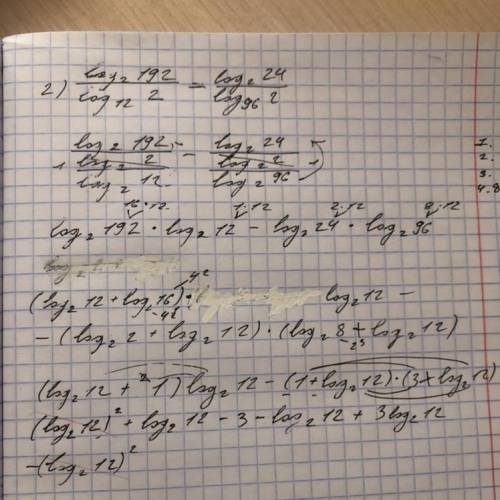 2) log₂ 192 / log₁₂ 2 = log₂ 24 / log₉₆ 2
log₂ 192 / (log₂ 2 / log₂ 12) - log₂ 24 / (log₂ 2 / log₂ 96)
16·12 1·12 2·12 8·12
log₂ 192 · log₂ 12 - log₂ 24 · log₂ 96
(log₂ 12 + log₂ 16) · log₂ 12 -
- (log₂ 2 + log₂ 12) · (log₂ 8 + log₂ 12)
(log₂ 12 + 1) log₂ 12 - (1 + log₂ 12) · (3 + log₂ 12)
(log₂ 12)² + log₂ 12 - 3 - log₂ 12 + 3 log₂ 12
- (log₂ 12)²
1.
2.
3.
4.8